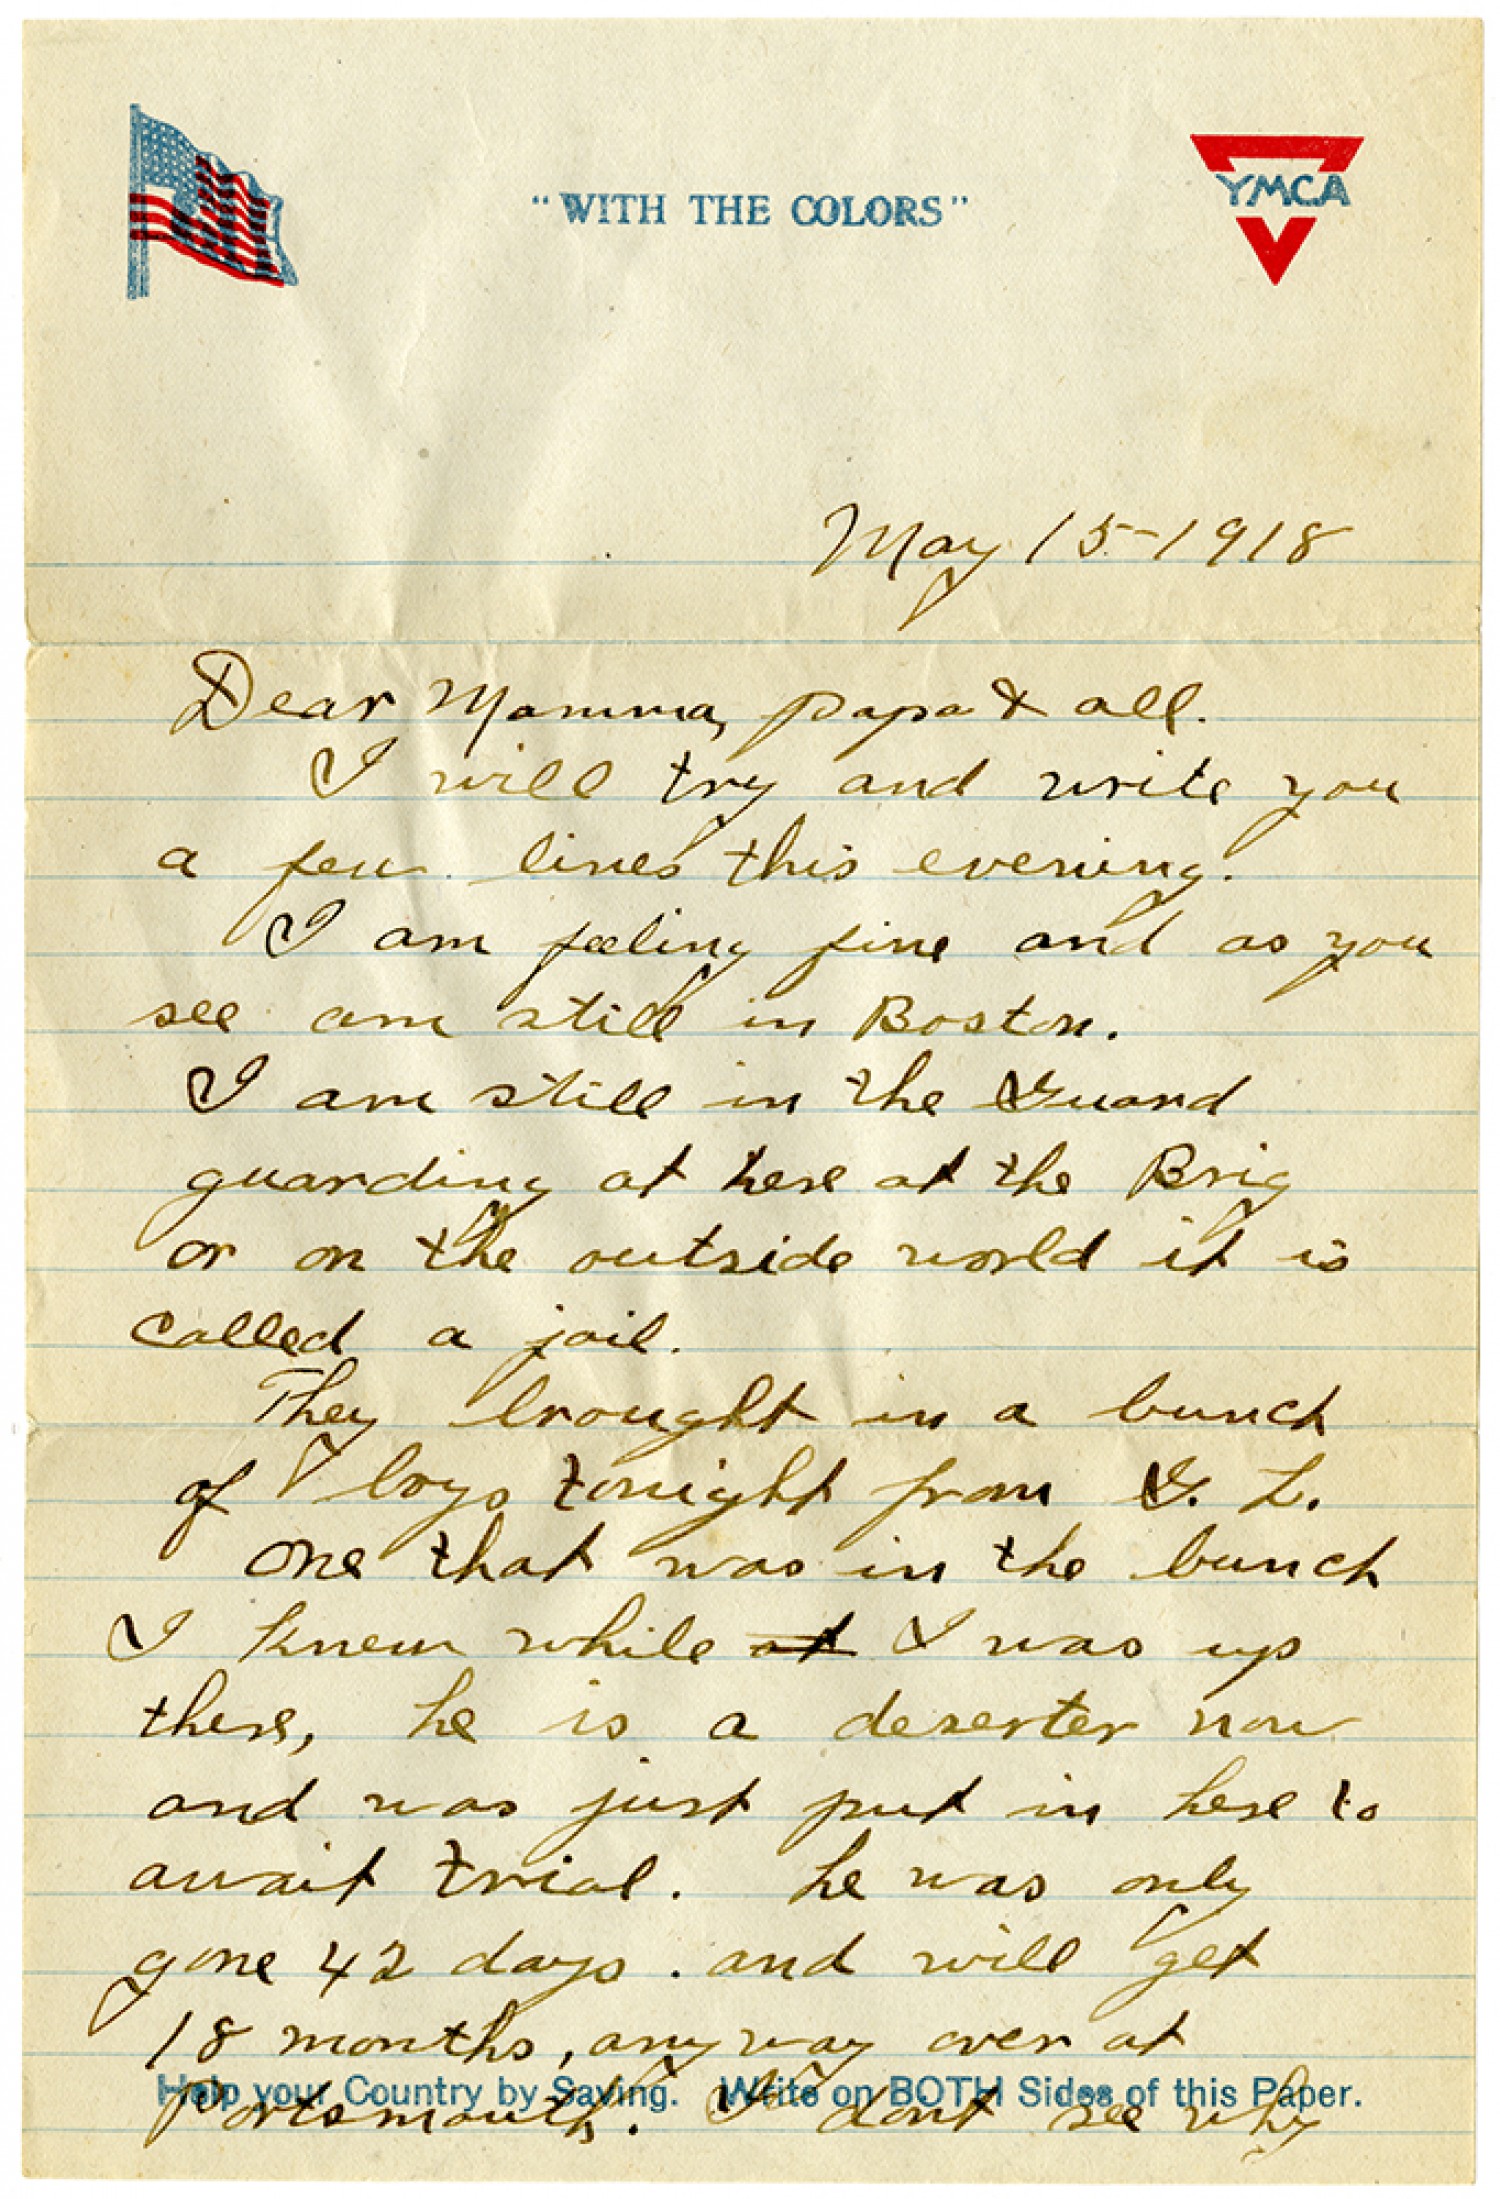 "WITH THE COLORS"
YMCA
May 15-1918
Dear Mamma, papa & all.
I will try and write you
a few lines this evening.
I am feeling fine and as you
see am still in Boston.
I am still in the Guard
guarding at here at the Brig
or on the outside world it is
called a jail.
They brought in a bunch
of boys tonight from G. L.
one that was in the bunch
I knew while at I was up
there, he is a deserter now
and was just put in here to
await trial. he was only
gone 42 days. and will get
18 months, anyway over at
Portsmouth. I dont see why
Help your Country by Saving. Write on BOTH Sides of this Paper.